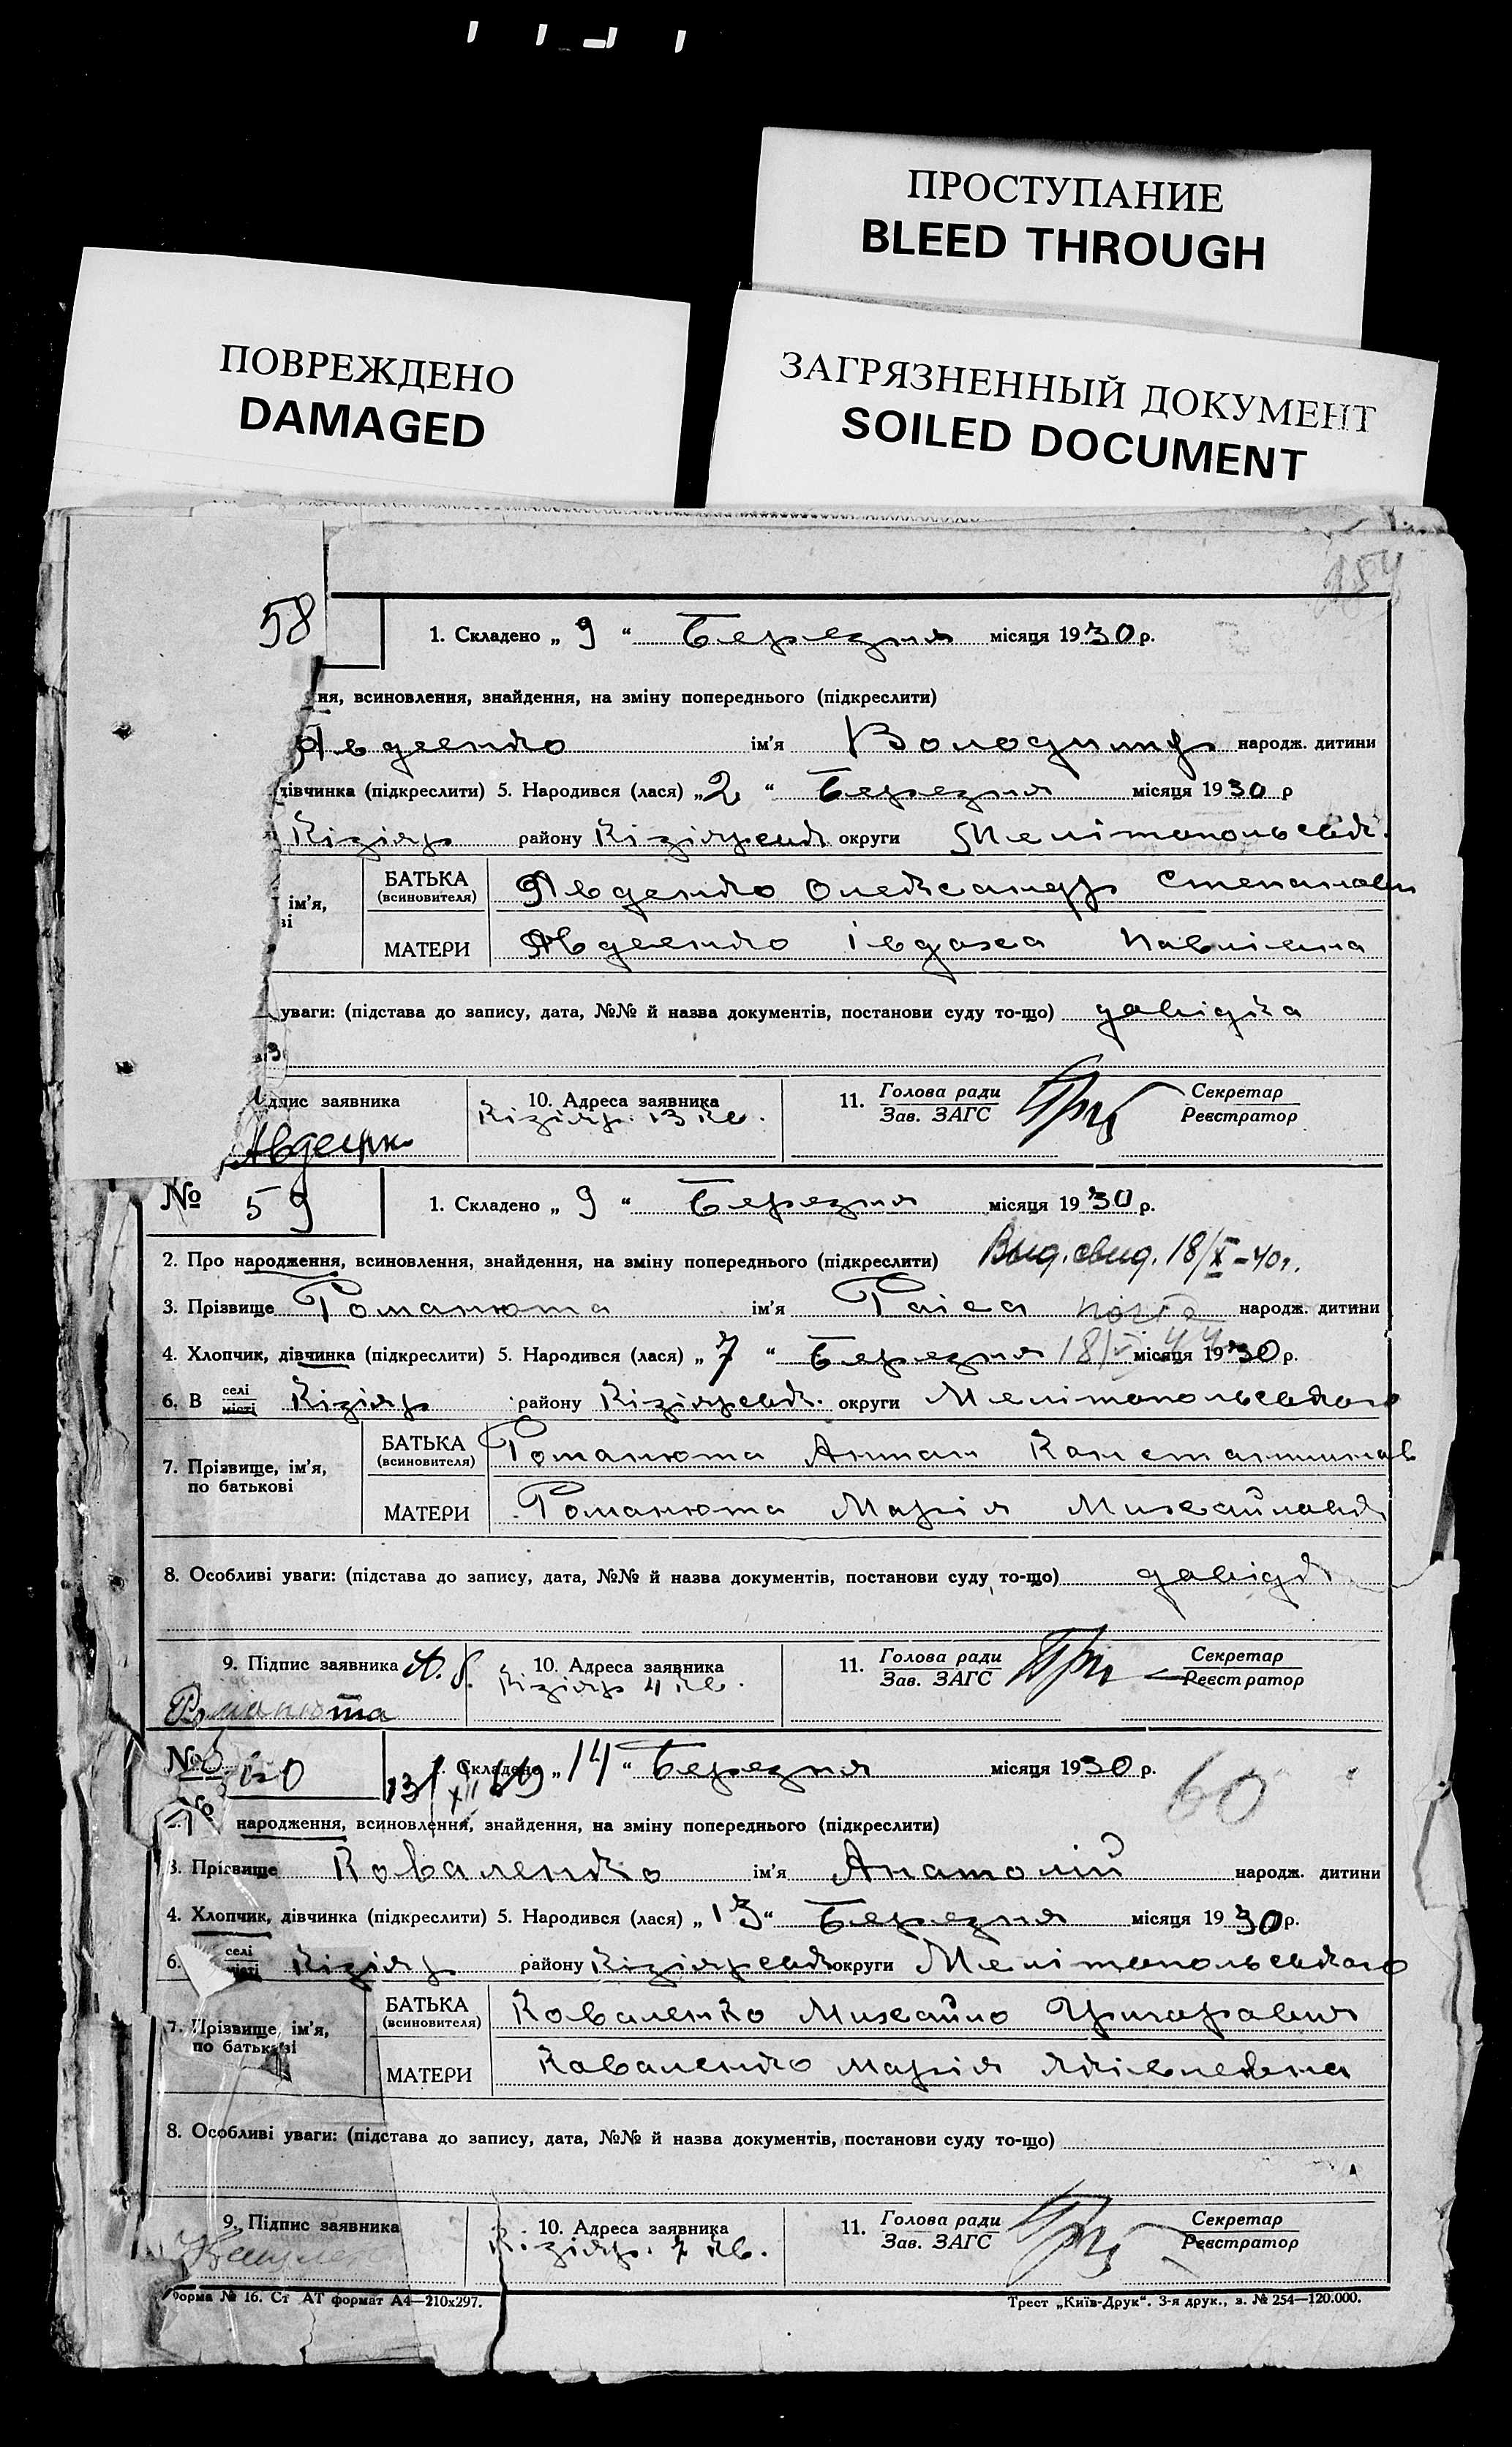 ПРОСТУПАНИЕ
BLEED THROUGH
ПОВРЕЖДЕНО
DAMAGED
ЗАГРЯЗНЕННЫЙ ДОКУМЕНТ
SOILED DOCUMENT
154
58
1. Складено „ 9 “ Березня місяця 1930 р.
ня, всиновлення, знайдення, на зміну попереднього (підкреслити)
Авдеенко ім'я Володимир народж. дитини
дівчинка (підкреслити) 5. Народився (лася) „ 2 “ Березня місяця 1930 р
Кізіяр району Кізіярськ округи Мелітопольськ.
ім'я,
ві
БАТЬКА
(всиновителя)
Авденко Олександр Степанови
МАТЕРИ Авдеенко Івдоха Павлівна
уваги: (підстава до запису, дата, №№ й назва документів, постанови суду то-що) довідка
дпис заявника
Авдеенко
10. Адреса заявника
Кізіяр. 13 кв.
11. Голова ради
Зав. ЗАГС
Секретар
Реєстратор
№ 59
1. Складено „ 9 “ Березня місяця 1930 р.
2. Про народження, всиновлення, знайдення, на зміну попереднього (підкреслити) Выд. свид. 18/X-40г.
3. Прізвище Романюта ім'я Раіса народж. дитини
4. Хлопчик, дівчинка (підкреслити) 5. Народився (лася) „ 7 “ Березня місяця 1930 р.
6. В селі
місті
Кізіяр району Кізіярськ. округи Мелітопольського
7. Прізвище, ім'я,
по батькові
БАТЬКА
(всиновителя)
Романюта Антон Константинов
МАТЕРИ Романюта Марія Михайловн
8. Особливі уваги: (підстава до запису, дата, №№ й назва документів, постанови суду то-що) довідк
9. Підпис заявника
Романюта
10. Адреса заявника
Кізіяр 4 кв.
11. Голова ради
Зав. ЗАГС
Секретар
Реєстратор
№ 60
Складено „ 14 “ Березня місяця 1930 р.
60
народження, всиновлення, знайдення, на зміну попереднього (підкреслити)
3. Прізвище Коваленко ім'я Анатолій народж. дитини
4. Хлопчик, дівчинка (підкреслити) 5. Народився (лася) „ 13 “ Березня місяця 1930 р.
6. селі
місті
Кізіяр району Кізіярськ округи Мелітопольського
7. Прізвище, ім'я,
по батькові
БАТЬКА
(всиновителя)
Коваленко Михайло Григорович
МАТЕРИ Коваленко Марія
8. Особливі уваги: (підстава до запису, дата, №№ й назва документів, постанови суду то-що)
9. Підпис заявника
10. Адреса заявника
Кізіяр. 7 кв.
11. Голова ради
Зав. ЗАГС
Секретар
Реєстратор
Форма № 16. Ст АТ формат А4—210х297.
Трест „Київ-Друк“. 3-я друк., з. № 254—120.000.